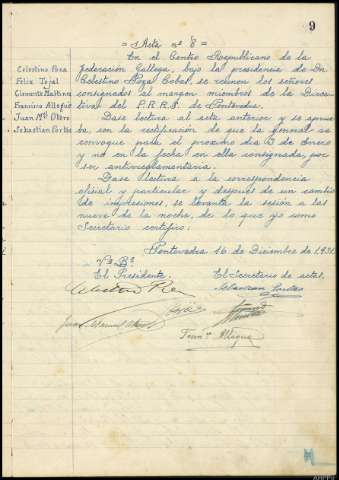 9
= Acta nº 8 =
En el Centro Republicano de la
Federación Gallega, bajo la presidencia de Dn
Celestino Poza Cobas, se reunen los señores
consignados al margen miembros de la Direc-
tiva del P.R.R.S. de Pontevedra.
Celestino Poza
Felix Tejal
Gimonte Martinez
Francisco Allegue
Juan Mel Otero
Sebastian Portas
Dase lectura al acta anterior y se aprue-
ba, con la rectificación de que la general se
convoque para el proximo dia 3 de Enero
y no en la fecha en ella consignada, por
ser antirreglamentaria.
Dase lectura a la correspondencia
oficial y particular y despues de un cambio
de impresiones, se levanta la sesión a las
nueve de la noche, de lo que yo como
Secretario certifico:
Pontevedra 16 de Diciembre de 1931
Vº Bº
El Presidente. El Secretario de actas,
Celestino Poza Sebastian Portas
Juan Manuel Otero
Franco Allegue